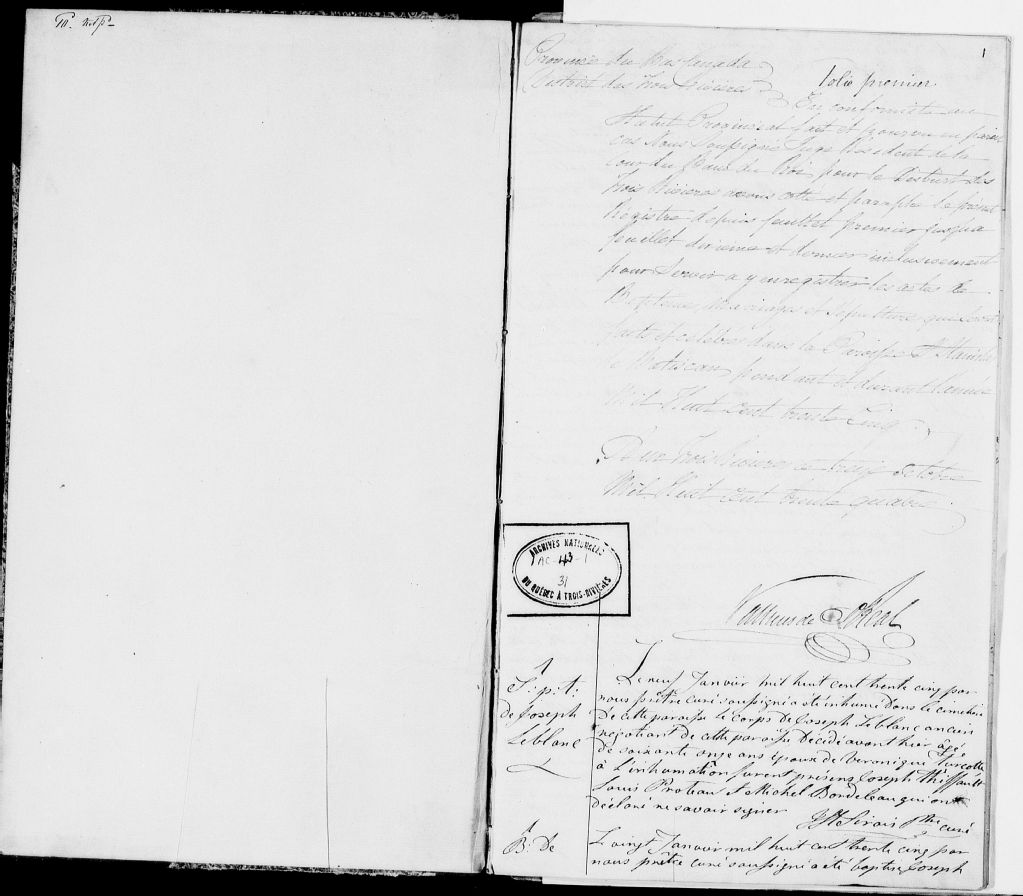 1
Province du Bas Canada
District des Trois Rivieres
Folio premier
En conformité au
Statut Provincial fait et pourvu en pareil
cas Nous Soussigné Juge Résident de la
Cour du Banc du Roi pour le District des
Trois Rivieres avons cotté et paraphé le présent
Registre depuis feuillet premier jusqua
feuillet et dernier inclusivement
pour Servir a y enregistrer les actes de
Baptême, mariages et Sépulture qui seront
faits et célébrés dans la Paroisse St Stanislas
de Batiscan pendant et durant l'année
Mil Huit Cent trente Cinq.
Mil Huit Cent trente quatre.
Vallieres de St Real
ARCHIVES NATIONALES
43
31
DU QUÉBEC À TROIS-RIVIÈRES
1
S:p:t:
de Joseph
Leblanc
Le neuf Janvier mil huit cent trente cinq par
nous prêtre curé soussigné a été inhumé dans le cimetière
de cette paroisse le corps de Joseph Leblanc ancien
négotiant de cette paroisse décédé avant hier âgé
de soixante onze ans époux de Veronique Turcotte
à l'inhumation furent présens Joseph Thiffault
Louis Proteau et Michel Bordeleau qui ont
déclaré ne savoir signer
Sirois Ptre curé
1
B: De
Le vingt Janvier mil huit cent trente cinq par
nous prêtre curé soussigné a été baptisé Joseph